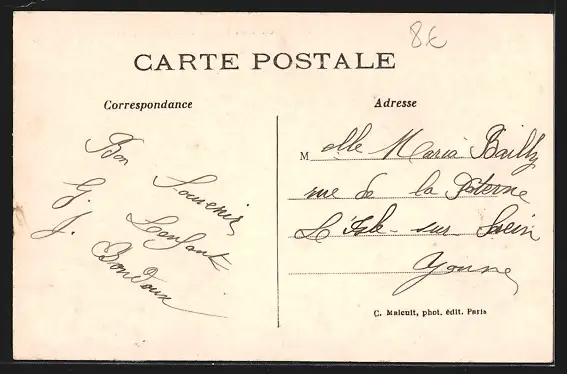 8€
CARTE POSTALE
Correspondance
Adresse
Bon
Souvenir
G. Lenfant
J. Bondoux
Melle Maria Bailly
rue de la Poterne
L'Isle-sur-Serein
Yonne
C. Malcuit, phot. édit. Paris